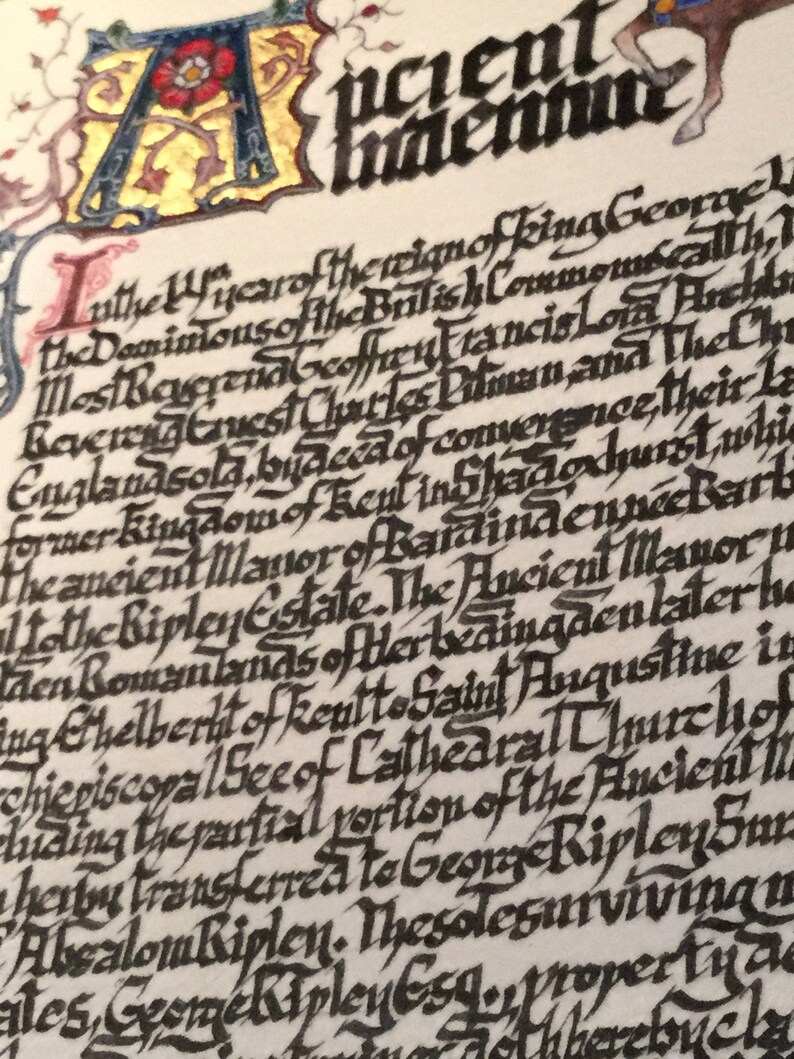 Ancient
Indenture
In the 14th year of the reign of king George V
the Dominions of the British Commonwealth,
Most Reverend Geoffrey Francis Lord Archb
Reverend Ernest Charles Pitman, and The Ch
England sold, by deed of convergence, their La
former Kingdom of Kent in Shadoxhurst, whi
the ancient Manor of Bardindenn, née Barb
to the Ripley Estate. The Ancient Manor
den Roman lands of Herbedingden later he
ing Æthelberht of Kent to Saint Augustine in
chiepiscopal See of Cathedral Church of
luding the partial portion of the Ancient M
herby transferred to George Ripley Sur
Absalom Ripley. The sole surviving
ates, George Ripley Esq., property de
doth hereby cla